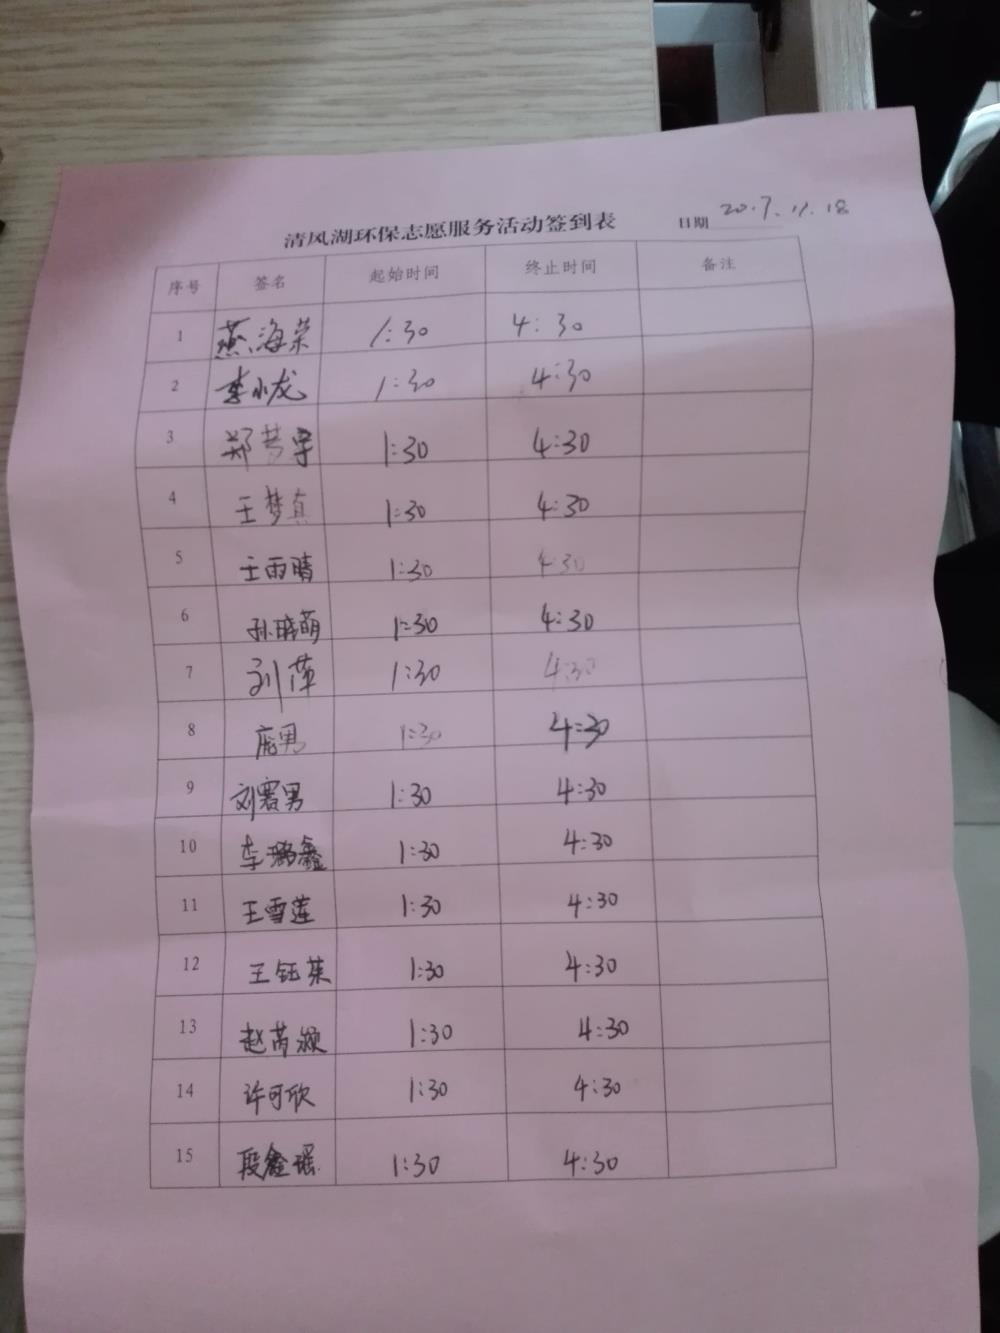 清风湖环保志愿服务活动签到表 日期 2017.11.18
序号 签名 起始时间 终止时间 备注
1 燕海荣 1:30 4:30
2 李小龙 1:30 4:30
3 郑梦宇 1:30 4:30
4 王梦真 1:30 4:30
5 王雨晴 1:30 4:30
6 孙晓萌 1:30 4:30
7 刘萍 1:30 4:30
8 庞男 1:30 4:30
9 刘赛男 1:30 4:30
10 李璐鑫 1:30 4:30
11 王雪莲 1:30 4:30
12 王钰茱 1:30 4:30
13 赵芮颍 1:30 4:30
14 许可欣 1:30 4:30
15 段鑫瑶 1:30 4:30